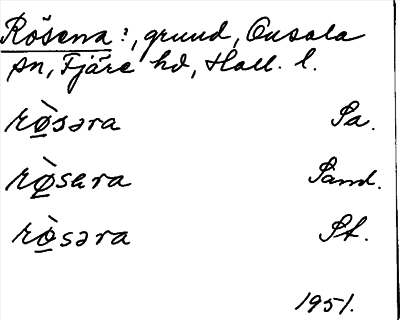 Rösena:, grund, Onsala
sn, Fjäre hd, Hall. l.
rø̀səra Sa.
rø̀sɐra Sand.
rø̀səra St.
1951.